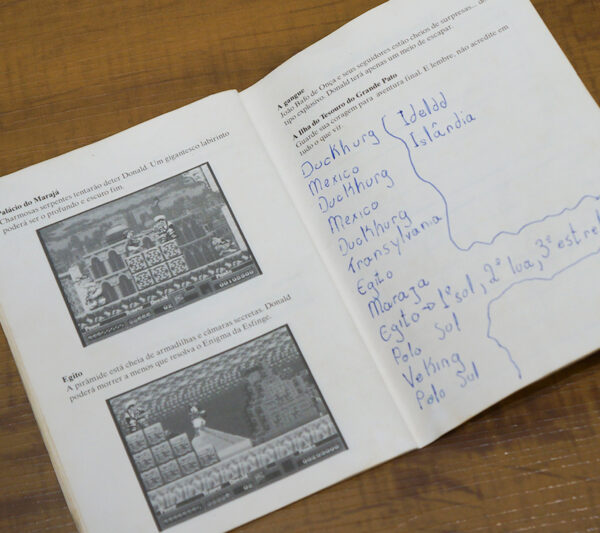 Palácio do Marajá
Charmosas serpentes tentarão deter Donald. Um gigantesco labirinto
poderá ser o profundo e escuro fim.
Egito
A pirâmide está cheia de armadilhas e câmaras secretas. Donald
poderá morrer a menos que resolva o Enigma da Esfinge.
A gangue
João Bafo de Onça e seus seguidores estão cheios de surpresas... do
tipo explosivo. Donald terá apenas um meio de escapar.
A Ilha do Tesouro do Grande Pato
Guarde sua coragem para aventura final. E lembre, não acredite em
tudo o que vir.
Duckhurg
Mexico
Duckhurg
Mexico
Duckhurg
Transylvania
Egito
Maraja
Egito → 1º sol, 2º lua, 3º estrel
Polo Sul
Veking
Polo Sul
Ideldd
Islândia